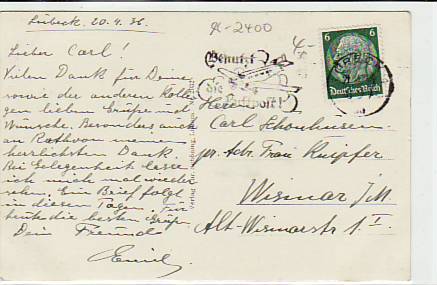 Lübeck, 20.4.36.
Lieber Carl!
Vielen Dank für Deine,
sowie der anderen Kolle-
gen lieben Grüße und
Wünsche. Besonders auch
an Rathvon meinen
herzlichsten Dank.
Bei Gelegenheit lasse
ich mich mal wieder
sehen. Ein Brief folgt
in diesen Tagen. Für
heute die besten Grüße
Dein Freund
Emil.
Benutzt
die
Luftpost!
6 6
Deutsches Reich
Herrn
Carl Schonhusen
pr. Adr. Frau Knipfer
Wismar i/M.
Alt-Wismarstr 1 I